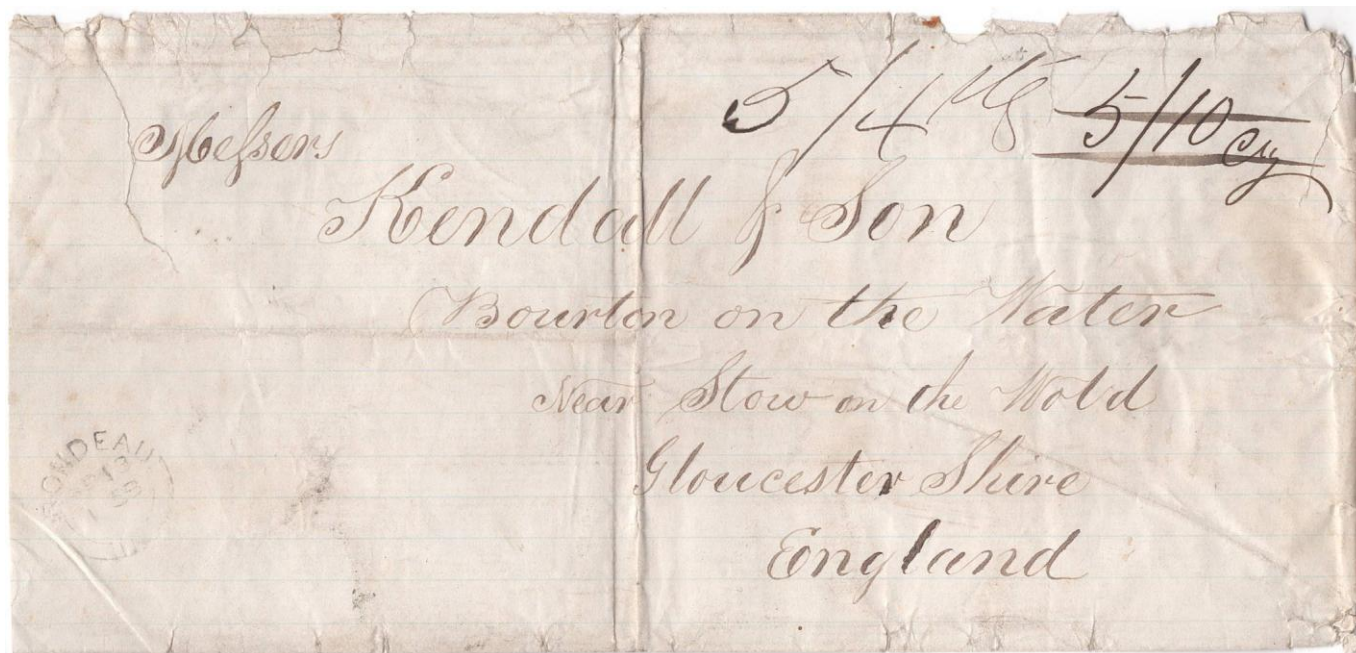 5/4 stg 5/10 cy
Messers
Kendall & Son
Bourton on the Water
Near Stow on the Wold
Gloucester Shire
England
RONDEAU